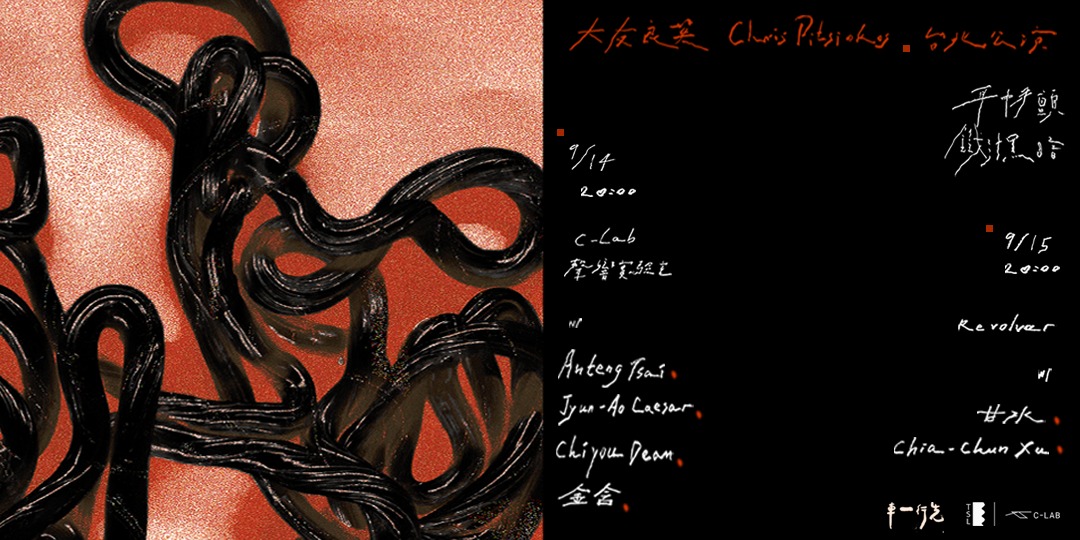 大友良英 Chris Pitsiokos 台北公演
9/14
20:00
C-Lab
聲響實驗室
w/
Anteng Tsai
Jyun-Ao Caesar
Chiyou Dean
金含
9/15
20:00
Revolver
w/
甘冰
Chia-Chun Xu
先行一車
TSL
C-LAB